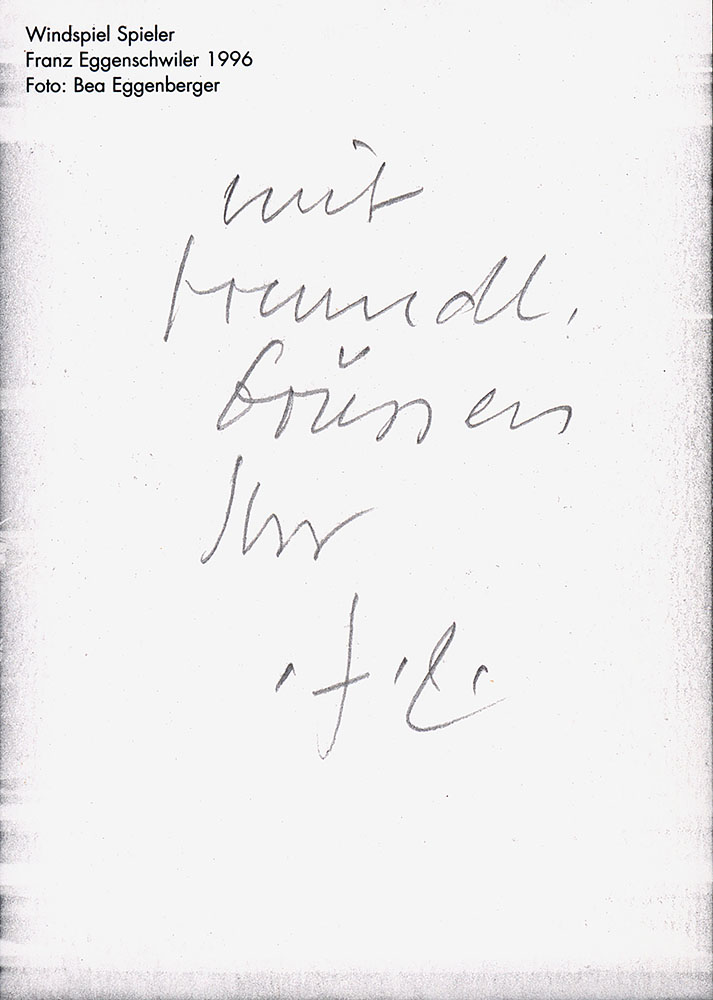 Windspiel Spieler
Franz Eggenschwiler 1996
Foto: Bea Eggenberger
mit
freundl.
Grüssen
Ihr
.f.E.